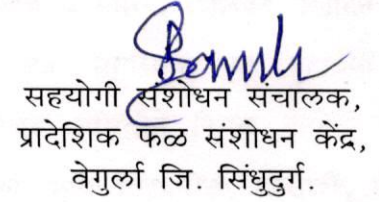 सहयोगी संशोधन संचालक,
प्रादेशिक फळ संशोधन केंद्र,
वेगुर्ला जि. सिंधुदुर्ग.